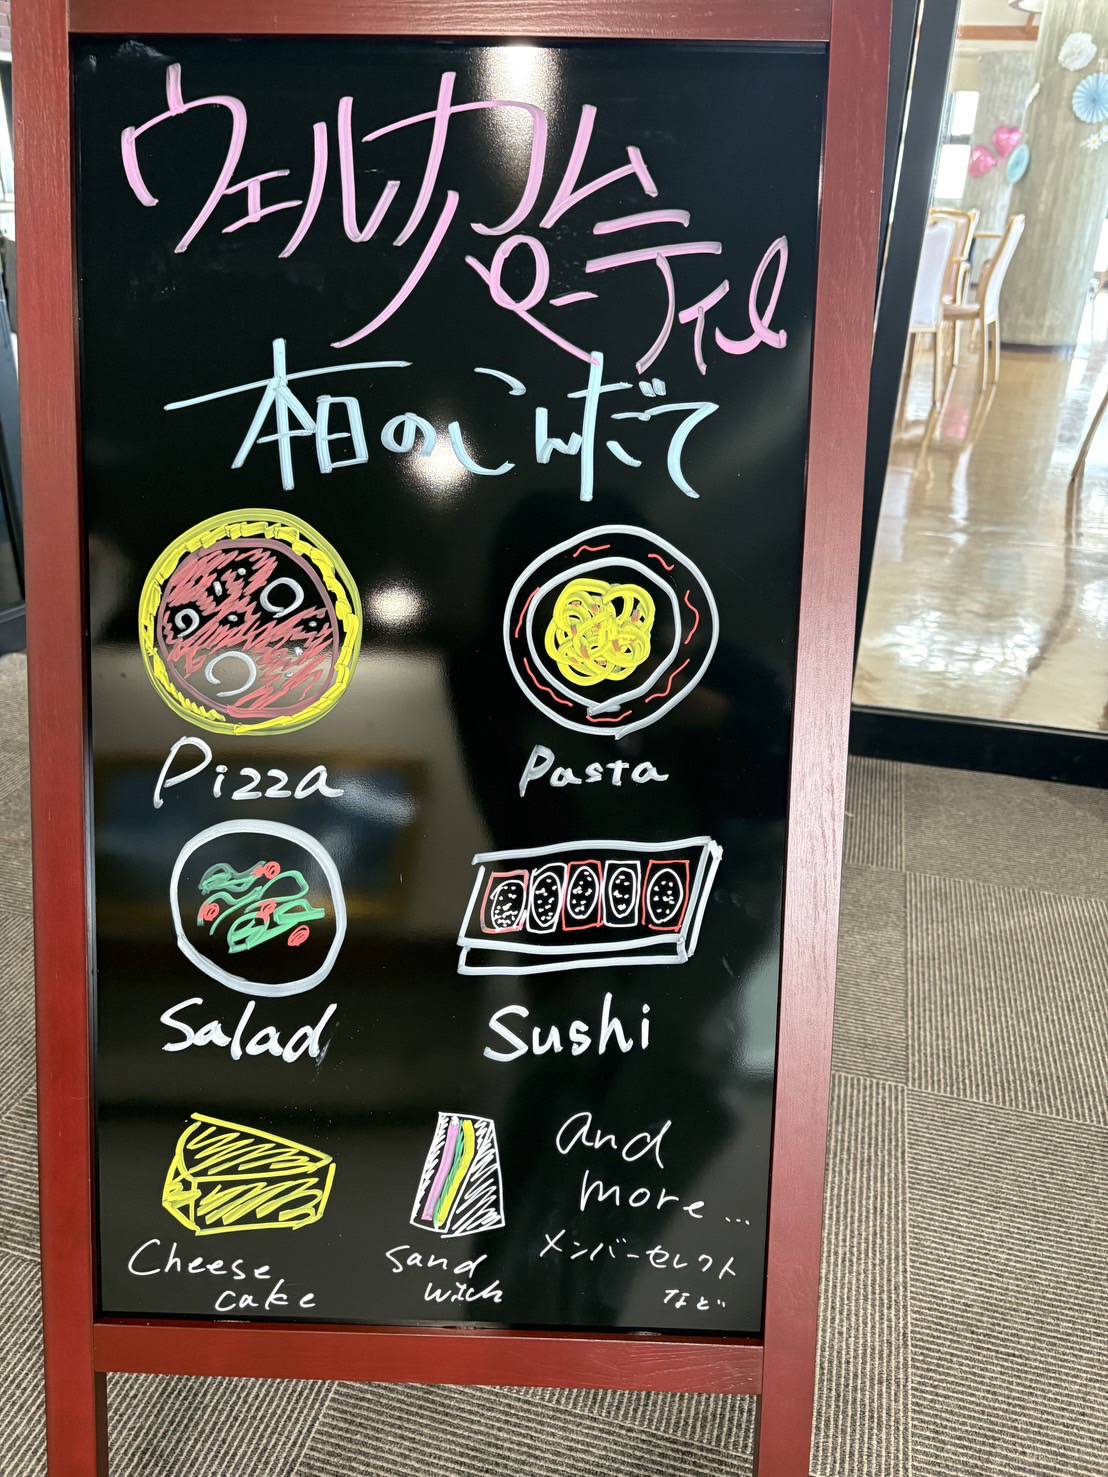 ウェルカム
パーティー
本日のこんだて
Pizza
Pasta
Salad
Sushi
Cheese
cake
Sand
wich
and
more...
メンバーセレクト
など